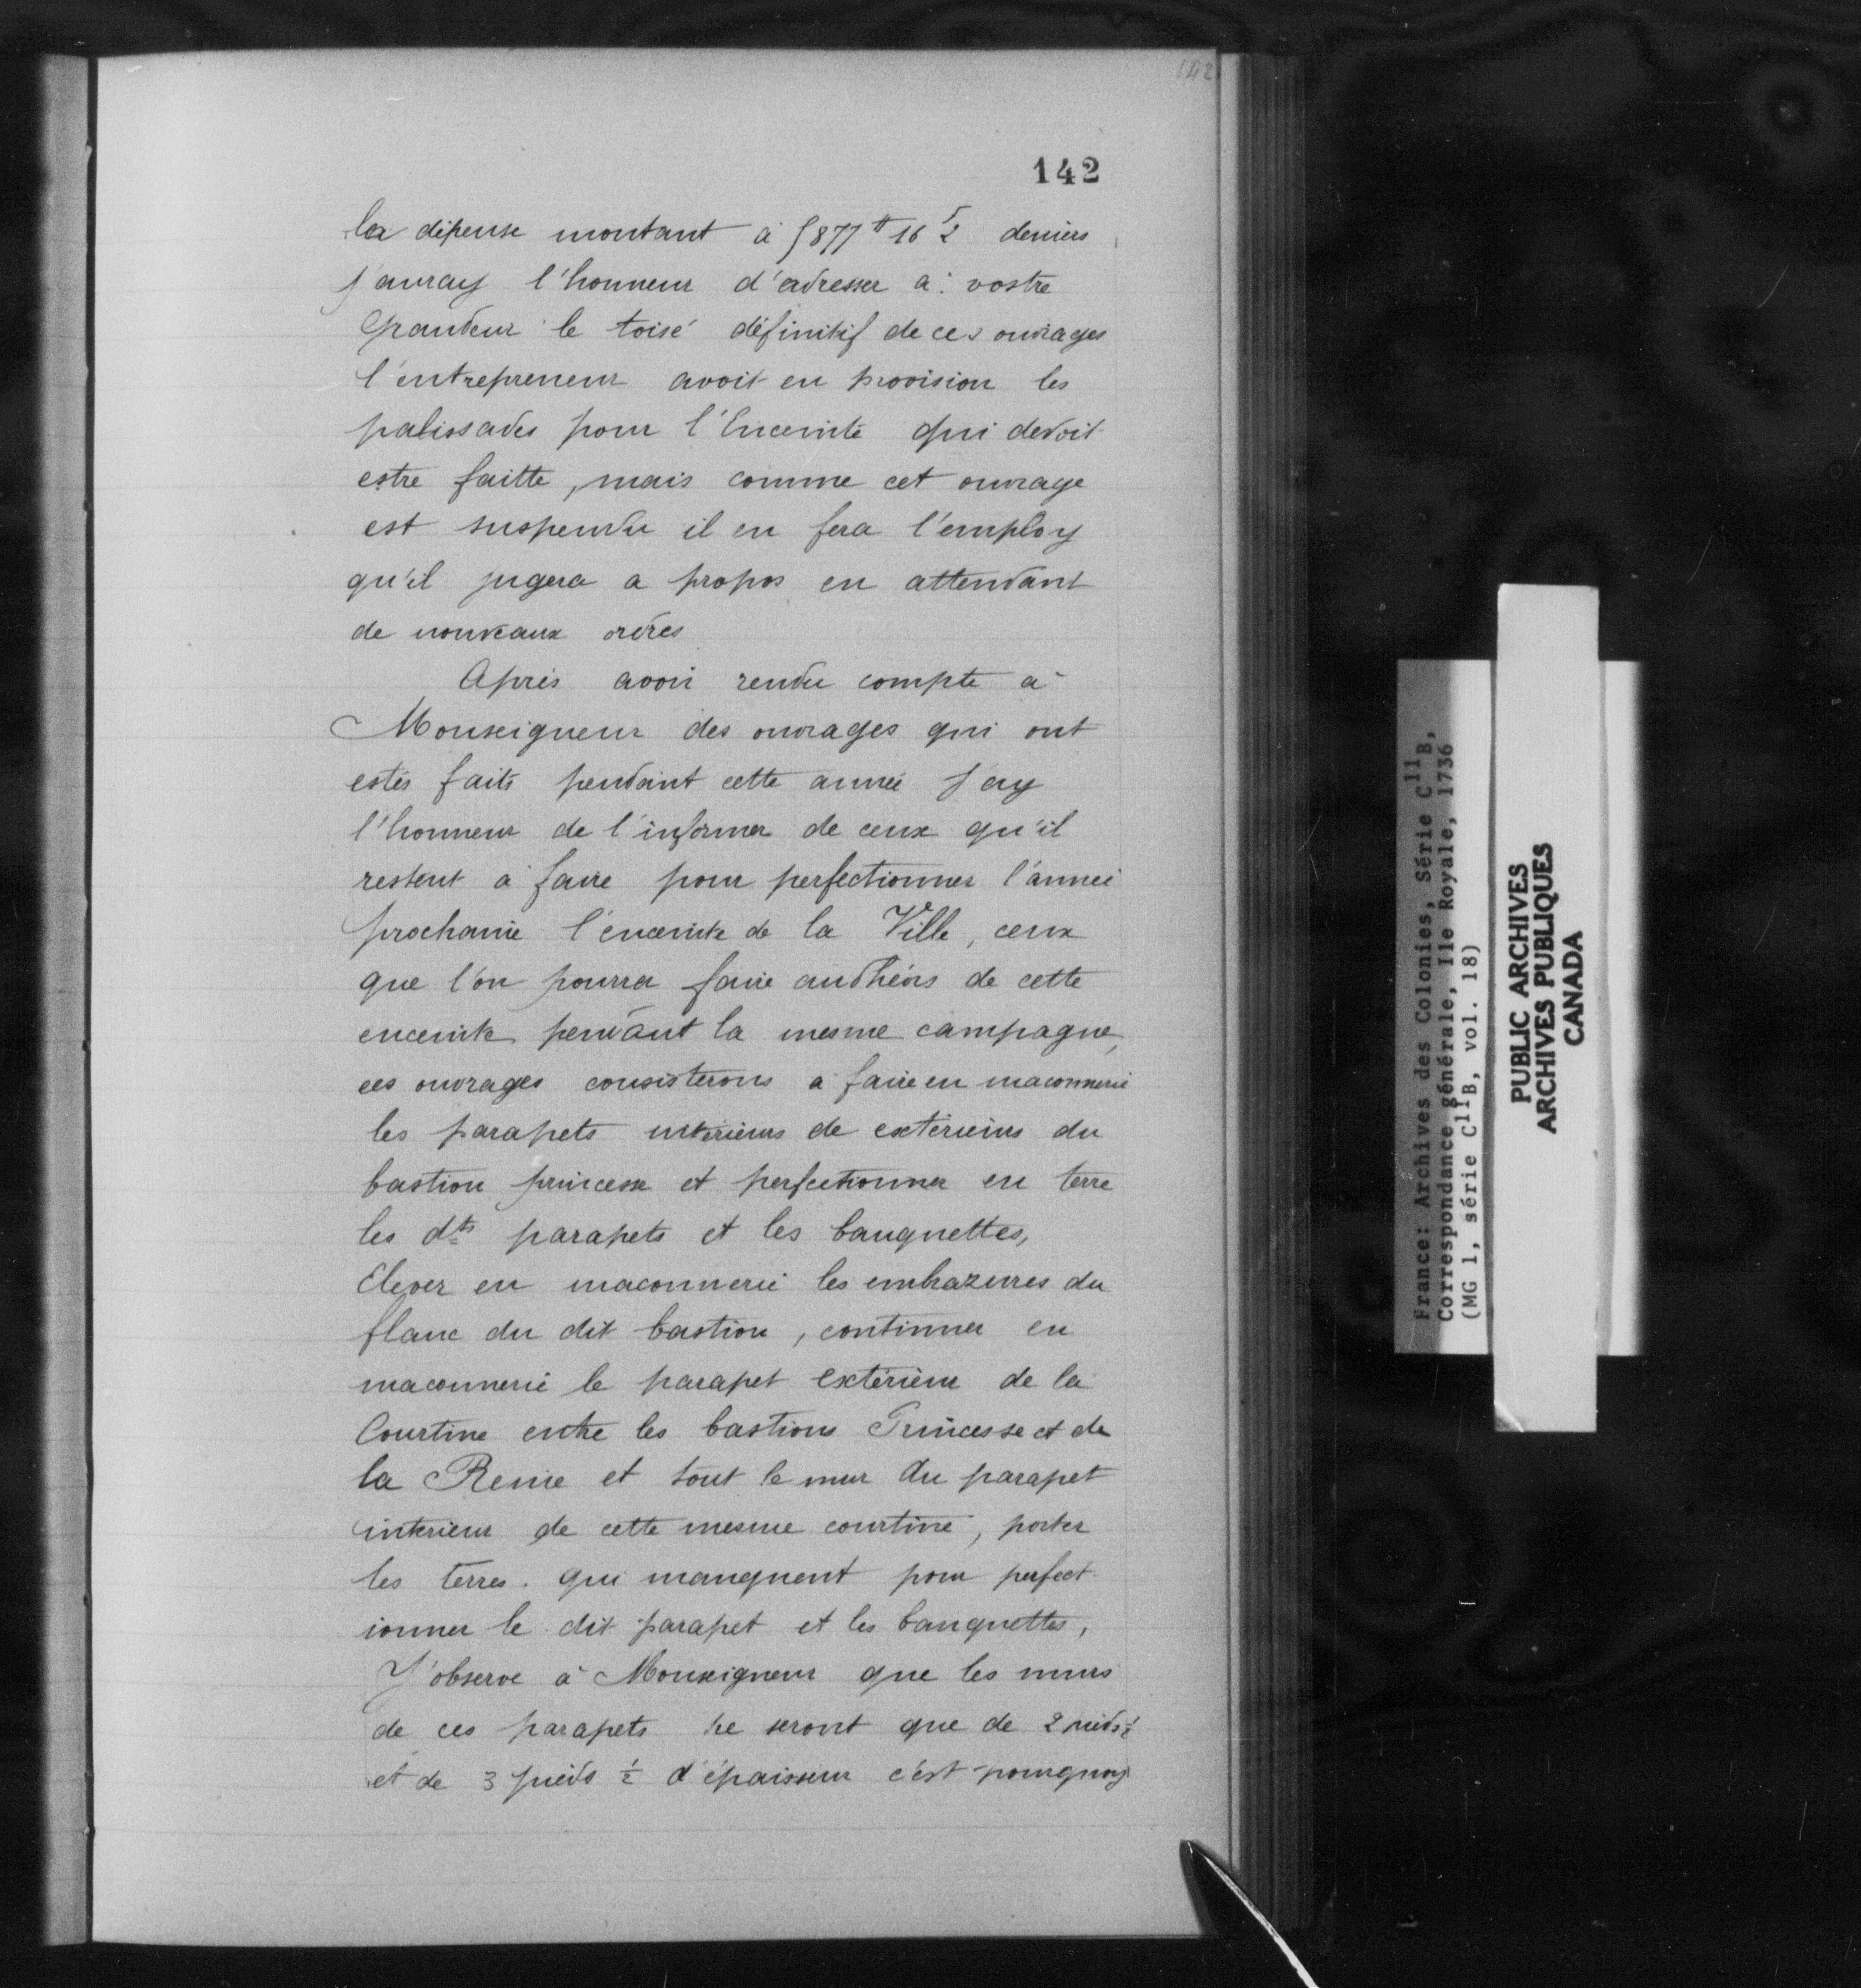 142
142
la dépense montant à 5877 ᵗᵗ 16 ˢ 2 deniers
j'auray l'honneur d'adresser à vostre
Grandeur le toisé définitif de ces ouvrages
l'entrepreneur avoit en provision les
palissades pour l'Enceinte qui devoit
estre faitte, mais comme cet ouvrage
est suspendu il en fera l'employ
qu'il jugera a propos en attendant
de nouveaux ordres
Après avoir rendu compte a
Monseigneur des ouvrages qui ont
estés faits pendant cette année J'ay
l'honneur de l'informer de ceux qu'il
restent à faire pour perfectionner l'année
prochaine l'enceinte de la Ville, ceux
que l'on pourra faire audhéors de cette
enceinte pendant la mesme campagne,
ces ouvrages consisterons à faire en maconnerie
les parapets intérieurs de extérieurs du
bastion princesse et perfectionner en terre
les dts parapets et les banquettes,
Elever en maconnerie les embrazures du
flanc du dit bastion, continuer en
maconnerie le parapet extérieur de la
Courtine entre les bastions Princesse et de
la Reine et tout le mur du parapet
interieur de cette mesme courtine, porter
les terres qui manquent pour perfect-
ionner le dit parapet et les banquettes,
J'observe à Monseigneur que les murs
de ces parapets ne seront que de 2 pieds ½
et de 3 pieds ½ d'épaisseur c'est pourquoy
France: Archives des Colonies, Série C11B,
Correspondance générale, Ile Royale, 1736
(MG 1, série C11B, vol. 18)
PUBLIC ARCHIVES
ARCHIVES PUBLIQUES
CANADA